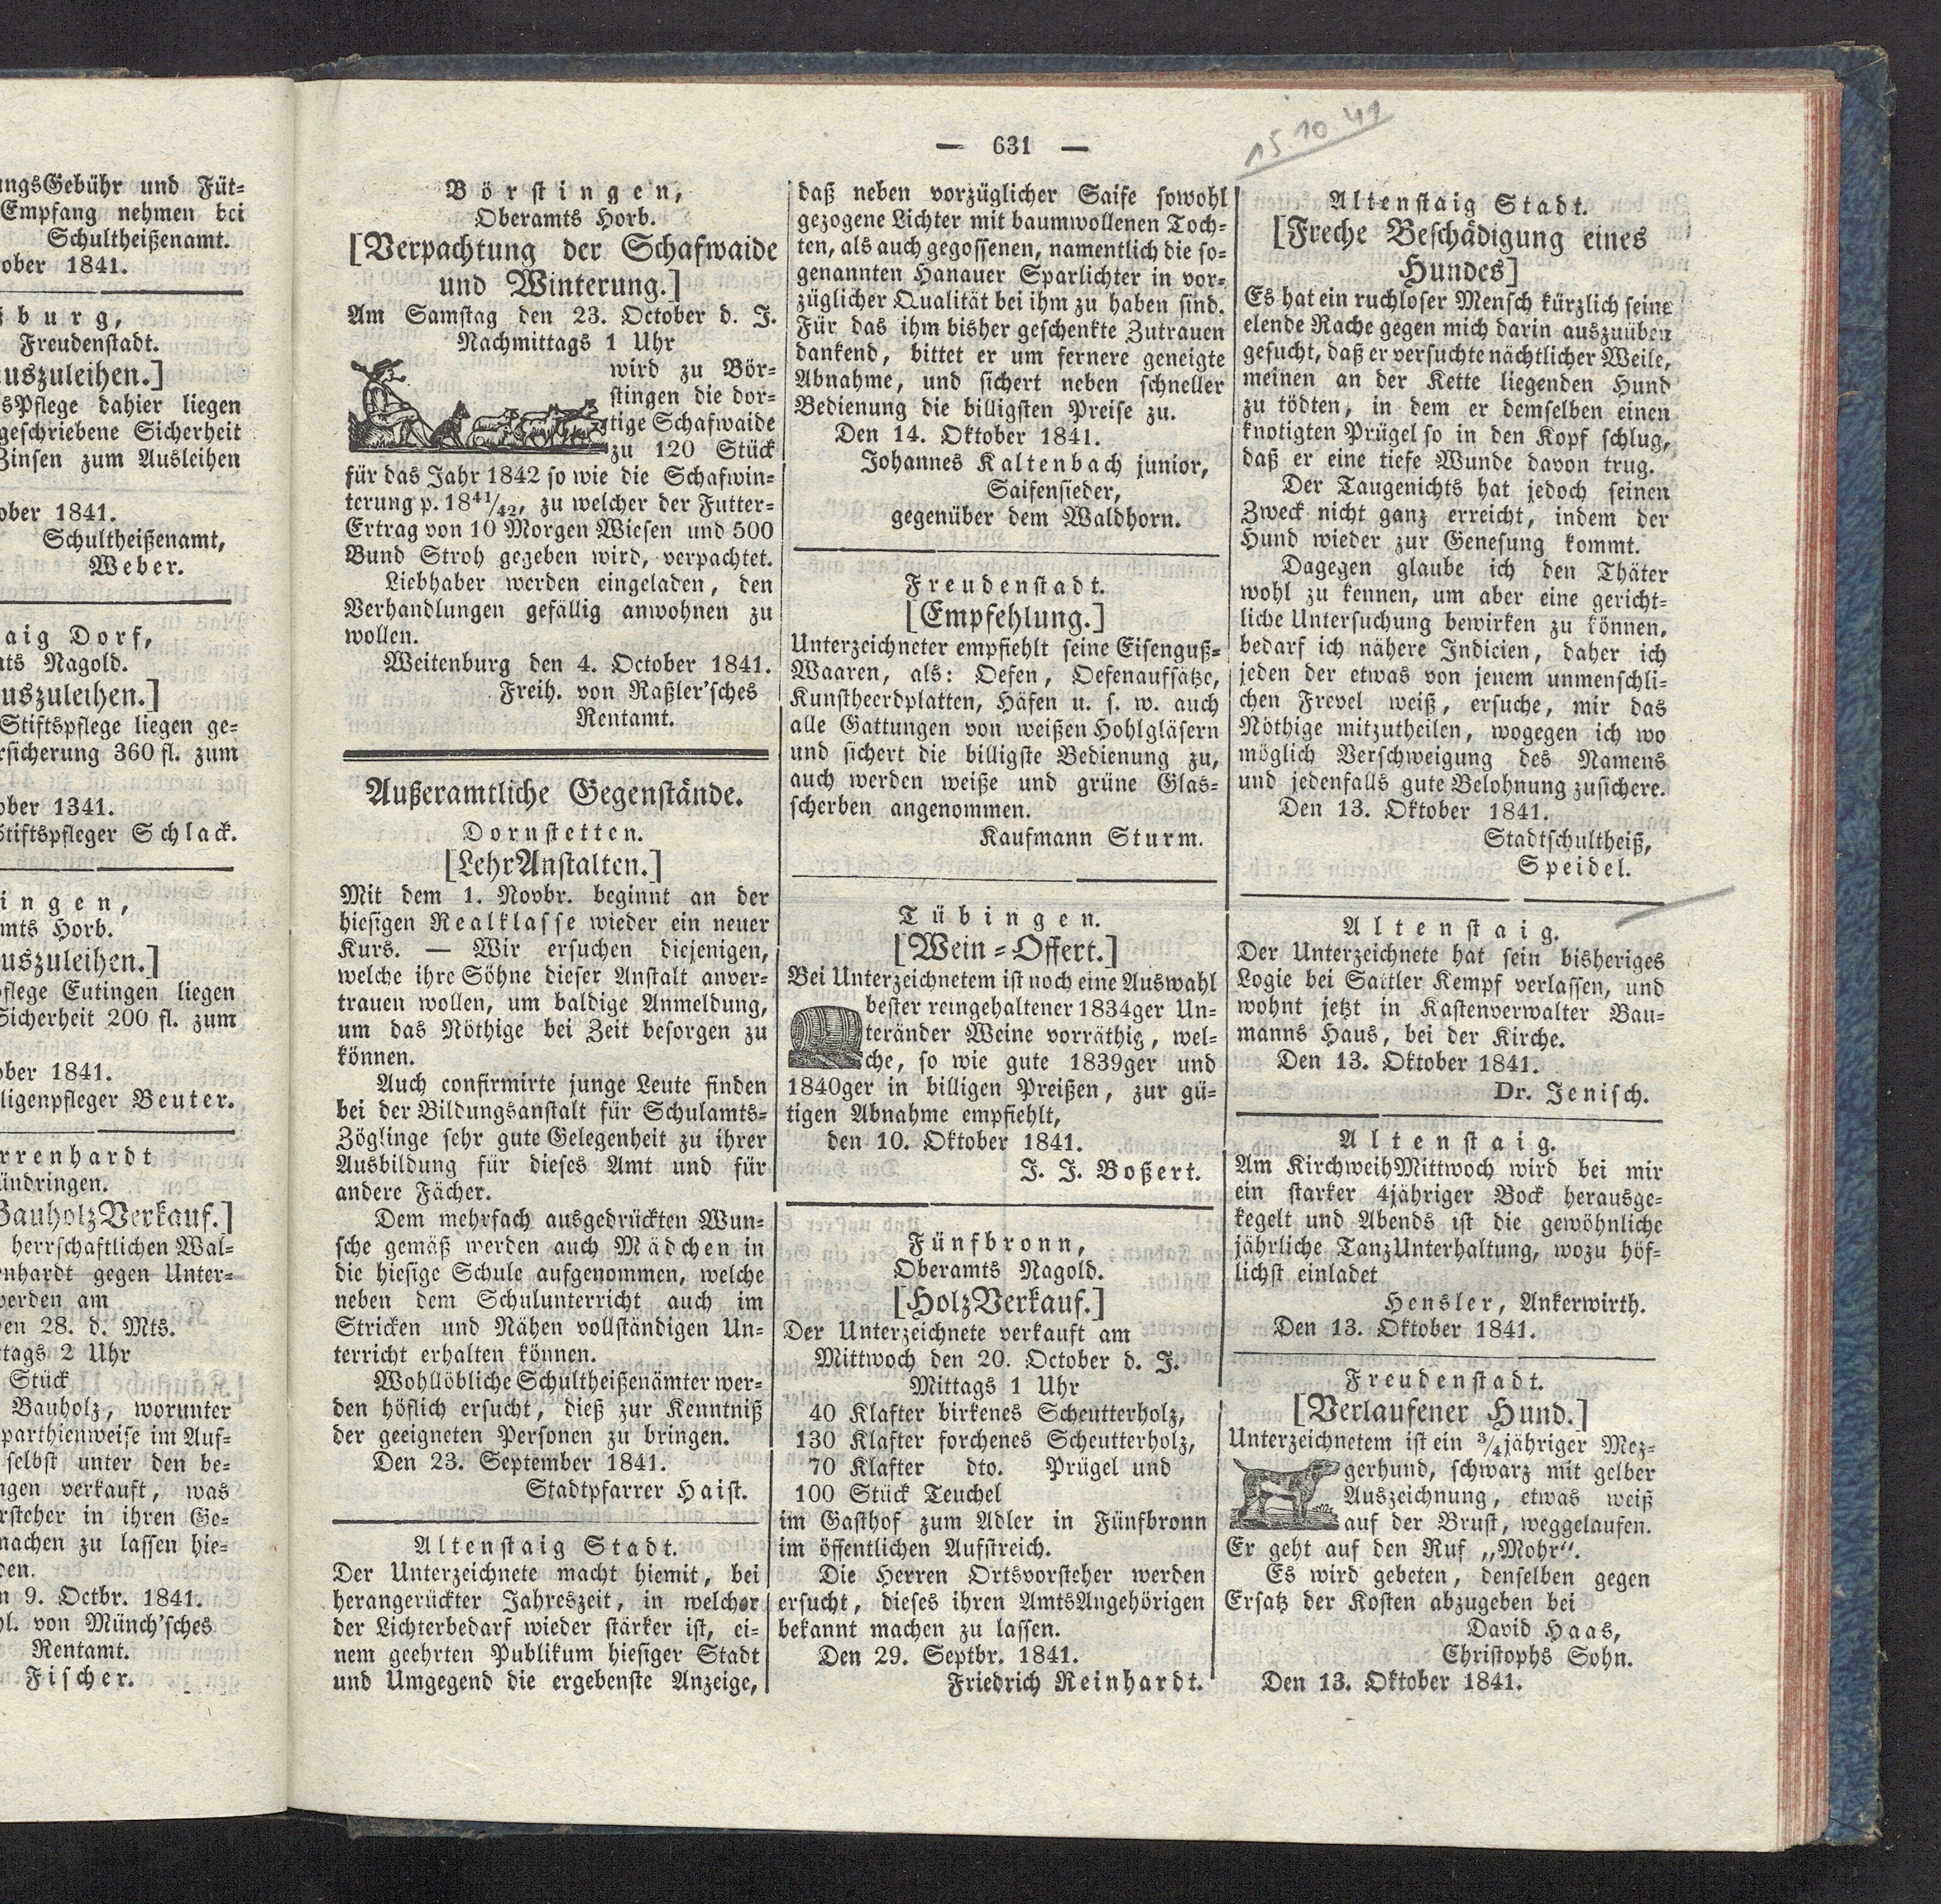 ngsGebühr und Füt-
Empfang nehmen bei
Schultheißenamt.
ober 1841.
burg,
Freudenstadt.
uszuleihen.]
sPflege dahier liegen
geschriebene Sicherheit
Zinsen zum Ausleihen
ober 1841.
Schultheißenamt,
Weber.
aig Dorf,
ts Nagold.
uszuleihen.]
Stiftspflege liegen ge-
rsicherung 360 fl. zum
ober 1341.
Stiftspfleger Schlack.
ingen,
mts Horb.
uszuleihen.]
pflege Eutingen liegen
Sicherheit 200 fl. zum
ober 1841.
ligenpfleger Beuter.
rrenhardt
ündringen.
BauholzVerkauf.]
herrschaftlichen Wal-
nhardt gegen Unter-
werden am
en 28. d. Mts.
tags 2 Uhr
Stück
Bauholz, worunter
parthienweise im Auf-
selbst unter den be-
ngen verkauft, was
rsteher in ihren Ge-
machen zu lassen hie-
den.
n 9. Octbr. 1841.
hl. von Münch'sches
Rentamt.
Fischer.
— 631 —
15.10 41
Börstingen,
Oberamts Horb.
[Verpachtung der Schafwaide
und Winterung.]
Am Samstag den 23. October d. J.
Nachmittags 1 Uhr
wird zu Bör-
stingen die dor-
tige Schafwaide
zu 120 Stück
für das Jahr 1842 so wie die Schafwin-
terung p. 1841/42, zu welcher der Futter-
Ertrag von 10 Morgen Wiesen und 500
Bund Stroh gegeben wird, verpachtet.
Liebhaber werden eingeladen, den
Verhandlungen gefällig anwohnen zu
wollen.
Weitenburg den 4. October 1841.
Freih. von Raßler'sches
Rentamt.
Außeramtliche Gegenstände.
Dornstetten.
[LehrAnstalten.]
Mit dem 1. Novbr. beginnt an der
hiesigen Realklasse wieder ein neuer
Kurs. — Wir ersuchen diejenigen,
welche ihre Söhne dieser Anstalt anver-
trauen wollen, um baldige Anmeldung,
um das Nöthige bei Zeit besorgen zu
können.
Auch confirmirte junge Leute finden
bei der Bildungsanstalt für Schulamts-
Zöglinge sehr gute Gelegenheit zu ihrer
Ausbildung für dieses Amt und für
andere Fächer.
Dem mehrfach ausgedrückten Wun-
sche gemäß werden auch Mädchen in
die hiesige Schule aufgenommen, welche
neben dem Schulunterricht auch im
Stricken und Nähen vollständigen Un-
terricht erhalten können.
Wohllöbliche Schultheißenämter wer-
den höflich ersucht, dieß zur Kenntniß
der geeigneten Personen zu bringen.
Den 23. September 1841.
Stadtpfarrer Haist.
Altenstaig Stadt.
Der Unterzeichnete macht hiemit, bei
herangerückter Jahreszeit, in welcher
der Lichterbedarf wieder stärker ist, ei-
nem geehrten Publikum hiesiger Stadt
und Umgegend die ergebenste Anzeige,
daß neben vorzüglicher Saife sowohl
gezogene Lichter mit baumwollenen Toch-
ten, als auch gegossenen, namentlich die so-
genannten Hanauer Sparlichter in vor-
züglicher Qualität bei ihm zu haben sind.
Für das ihm bisher geschenkte Zutrauen
dankend, bittet er um fernere geneigte
Abnahme, und sichert neben schneller
Bedienung die billigsten Preise zu.
Den 14. Oktober 1841.
Johannes Kaltenbach junior,
Saifensieder,
gegenüber dem Waldhorn.
Freudenstadt.
[Empfehlung.]
Unterzeichneter empfiehlt seine Eisenguß-
Waaren, als: Oefen, Oefenaufsätze,
Kunstheerdplatten, Häfen u. s. w. auch
alle Gattungen von weißen Hohlgläsern
und sichert die billigste Bedienung zu,
auch werden weiße und grüne Glas-
scherben angenommen.
Kaufmann Sturm.
Tübingen.
[Wein-Offert.]
Bei Unterzeichnetem ist noch eine Auswahl
bester reingehaltener 1834ger Un-
teränder Weine vorräthig, wel-
che, so wie gute 1839ger und
1840ger in billigen Preißen, zur gü-
tigen Abnahme empfiehlt,
den 10. Oktober 1841.
J. J. Boßert.
Fünfbronn,
Oberamts Nagold.
[HolzVerkauf.]
Der Unterzeichnete verkauft am
Mittwoch den 20. October d. J.
Mittags 1 Uhr
40 Klafter birkenes Scheutterholz,
130 Klafter forchenes Scheutterholz,
70 Klafter dto. Prügel und
100 Stück Teuchel
im Gasthof zum Adler in Fünfbronn
im öffentlichen Aufstreich.
Die Herren Ortsvorsteher werden
ersucht, dieses ihren AmtsAngehörigen
bekannt machen zu lassen.
Den 29. Septbr. 1841.
Friedrich Reinhardt.
Altenstaig Stadt.
[Freche Beschädigung eines
Hundes]
Es hat ein ruchloser Mensch kürzlich seine
elende Rache gegen mich darin auszuüben
gesucht, daß er versuchte nächtlicher Weile,
meinen an der Kette liegenden Hund
zu tödten, in dem er demselben einen
knotigten Prügel so in den Kopf schlug,
daß er eine tiefe Wunde davon trug.
Der Taugenichts hat jedoch seinen
Zweck nicht ganz erreicht, indem der
Hund wieder zur Genesung kommt.
Dagegen glaube ich den Thäter
wohl zu kennen, um aber eine gericht-
liche Untersuchung bewirken zu können,
bedarf ich nähere Indicien, daher ich
jeden der etwas von jenem unmenschli-
chen Frevel weiß, ersuche, mir das
Nöthige mitzutheilen, wogegen ich wo
möglich Verschweigung des Namens
und jedenfalls gute Belohnung zusichere.
Den 13. Oktober 1841.
Stadtschultheiß,
Speidel.
Altenstaig.
Der Unterzeichnete hat sein bisheriges
Logie bei Sattler Kempf verlassen, und
wohnt jetzt in Kastenverwalter Bau-
manns Haus, bei der Kirche.
Den 13. Oktober 1841.
Dr. Jenisch.
Altenstaig.
Am KirchweihMittwoch wird bei mir
ein starker 4jähriger Bock herausge-
kegelt und Abends ist die gewöhnliche
jährliche TanzUnterhaltung, wozu höf-
lichst einladet
Hensler, Ankerwirth.
Den 13. Oktober 1841.
Freudenstadt.
[Verlaufener Hund.]
Unterzeichnetem ist ein 3/4jähriger Mez-
gerhund, schwarz mit gelber
Auszeichnung, etwas weiß
auf der Brust, weggelaufen.
Er geht auf den Ruf „Mohr".
Es wird gebeten, denselben gegen
Ersatz der Kosten abzugeben bei
David Haas,
Christophs Sohn.
Den 13. Oktober 1841.